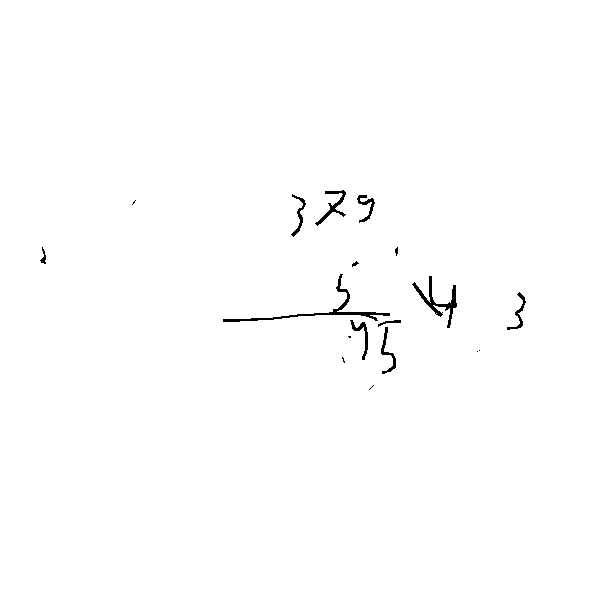 379
5 4 3
45